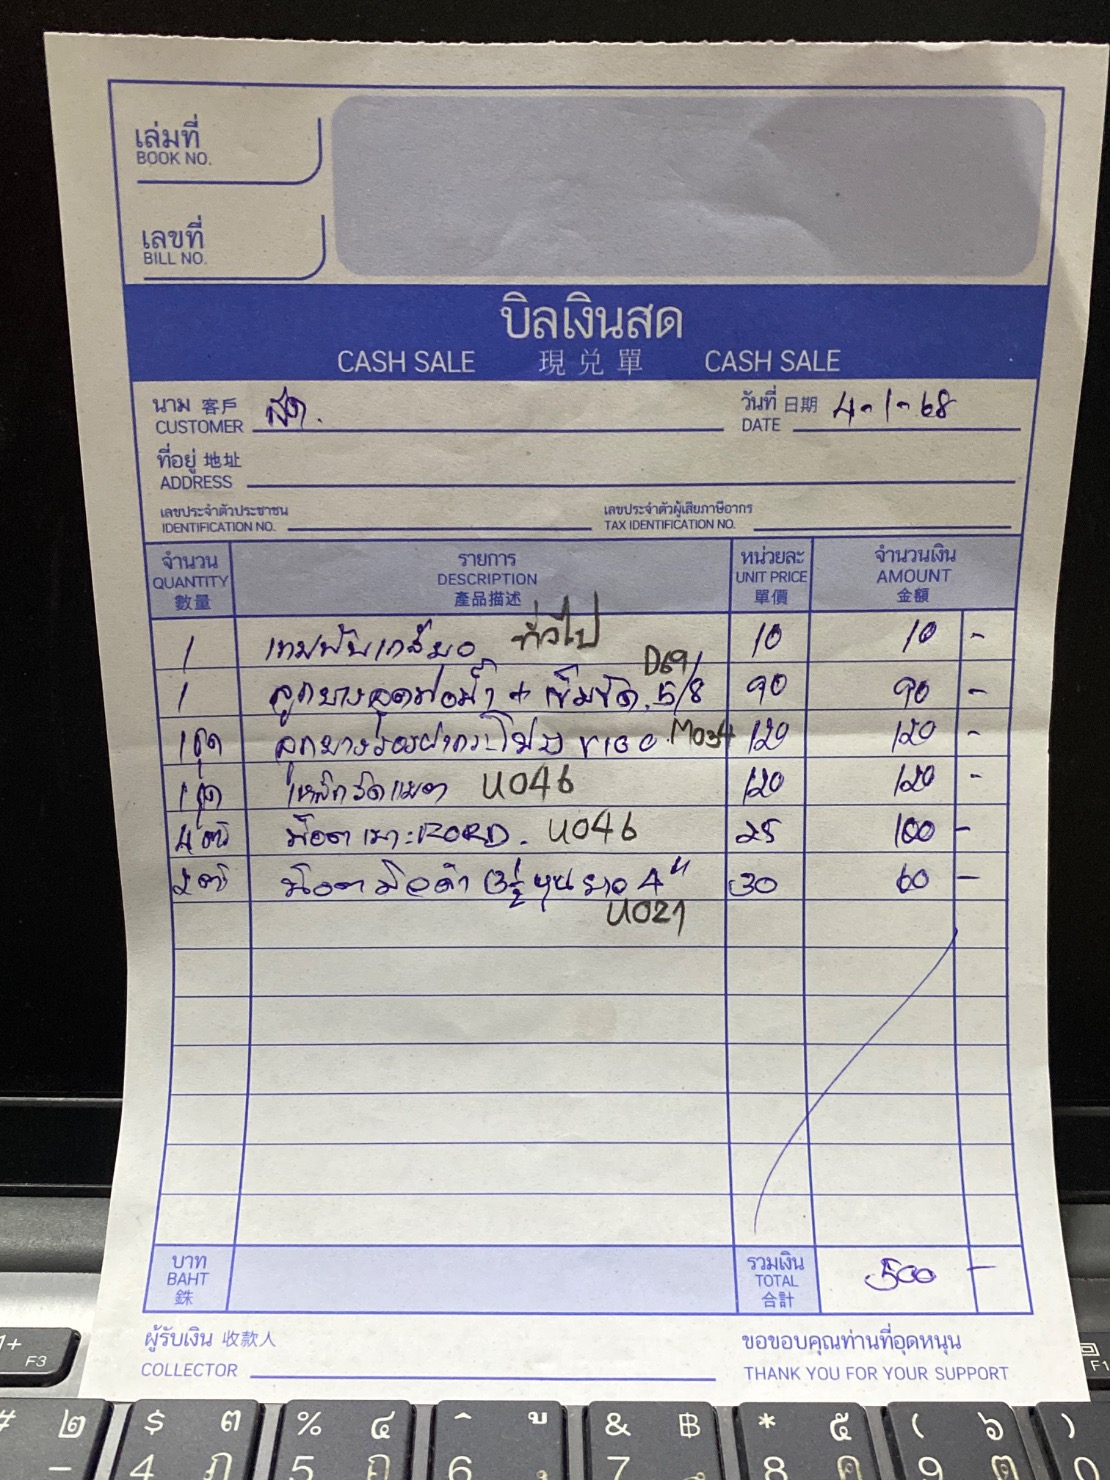 เล่มที่
BOOK NO.
เลขที่
BILL NO.
บิลเงินสด
CASH SALE 現兌單 CASH SALE
นาม 客戶 สด. วันที่ 日期 4-1-68
CUSTOMER DATE
ที่อยู่ 地址
ADDRESS
เลขประจำตัวประชาชน เลขประจำตัวผู้เสียภาษีอากร
IDENTIFICATION NO. TAX IDENTIFICATION NO.
จำนวน รายการ หน่วยละ จำนวนเงิน
QUANTITY DESCRIPTION UNIT PRICE AMOUNT
數量 產品描述 單價 金額
1 เทปพันเกลียว ทั่วไป 10 10 -
D69
1 ลูกยางอุดท่อน้ำ + เข็มขัด 5/8 90 90 -
1 ชุด ลูกยางรองฝากระโปรง VIGO M034 120 120 -
1 ชุด เหล็กรัดแบต U046 120 120 -
4 ตัว น็อตเบาะ FORD. U046 25 100 -
2 ตัว น็อตมิลดำ 3½ หุน ยาว 4" 30 60 -
U021
บาท รวมเงิน
BAHT TOTAL 500 -
銖 合計
ผู้รับเงิน 收款人 ขอขอบคุณท่านที่อุดหนุน
COLLECTOR THANK YOU FOR YOUR SUPPORT
1+ F3
# ๒ $ ๓ % ๔ ^ ู & ฿ * ๕ ( ๖ )
- 4 ภ 5 ถ 6 ุ 7 ึ 8 ค 9 ต 0
F1